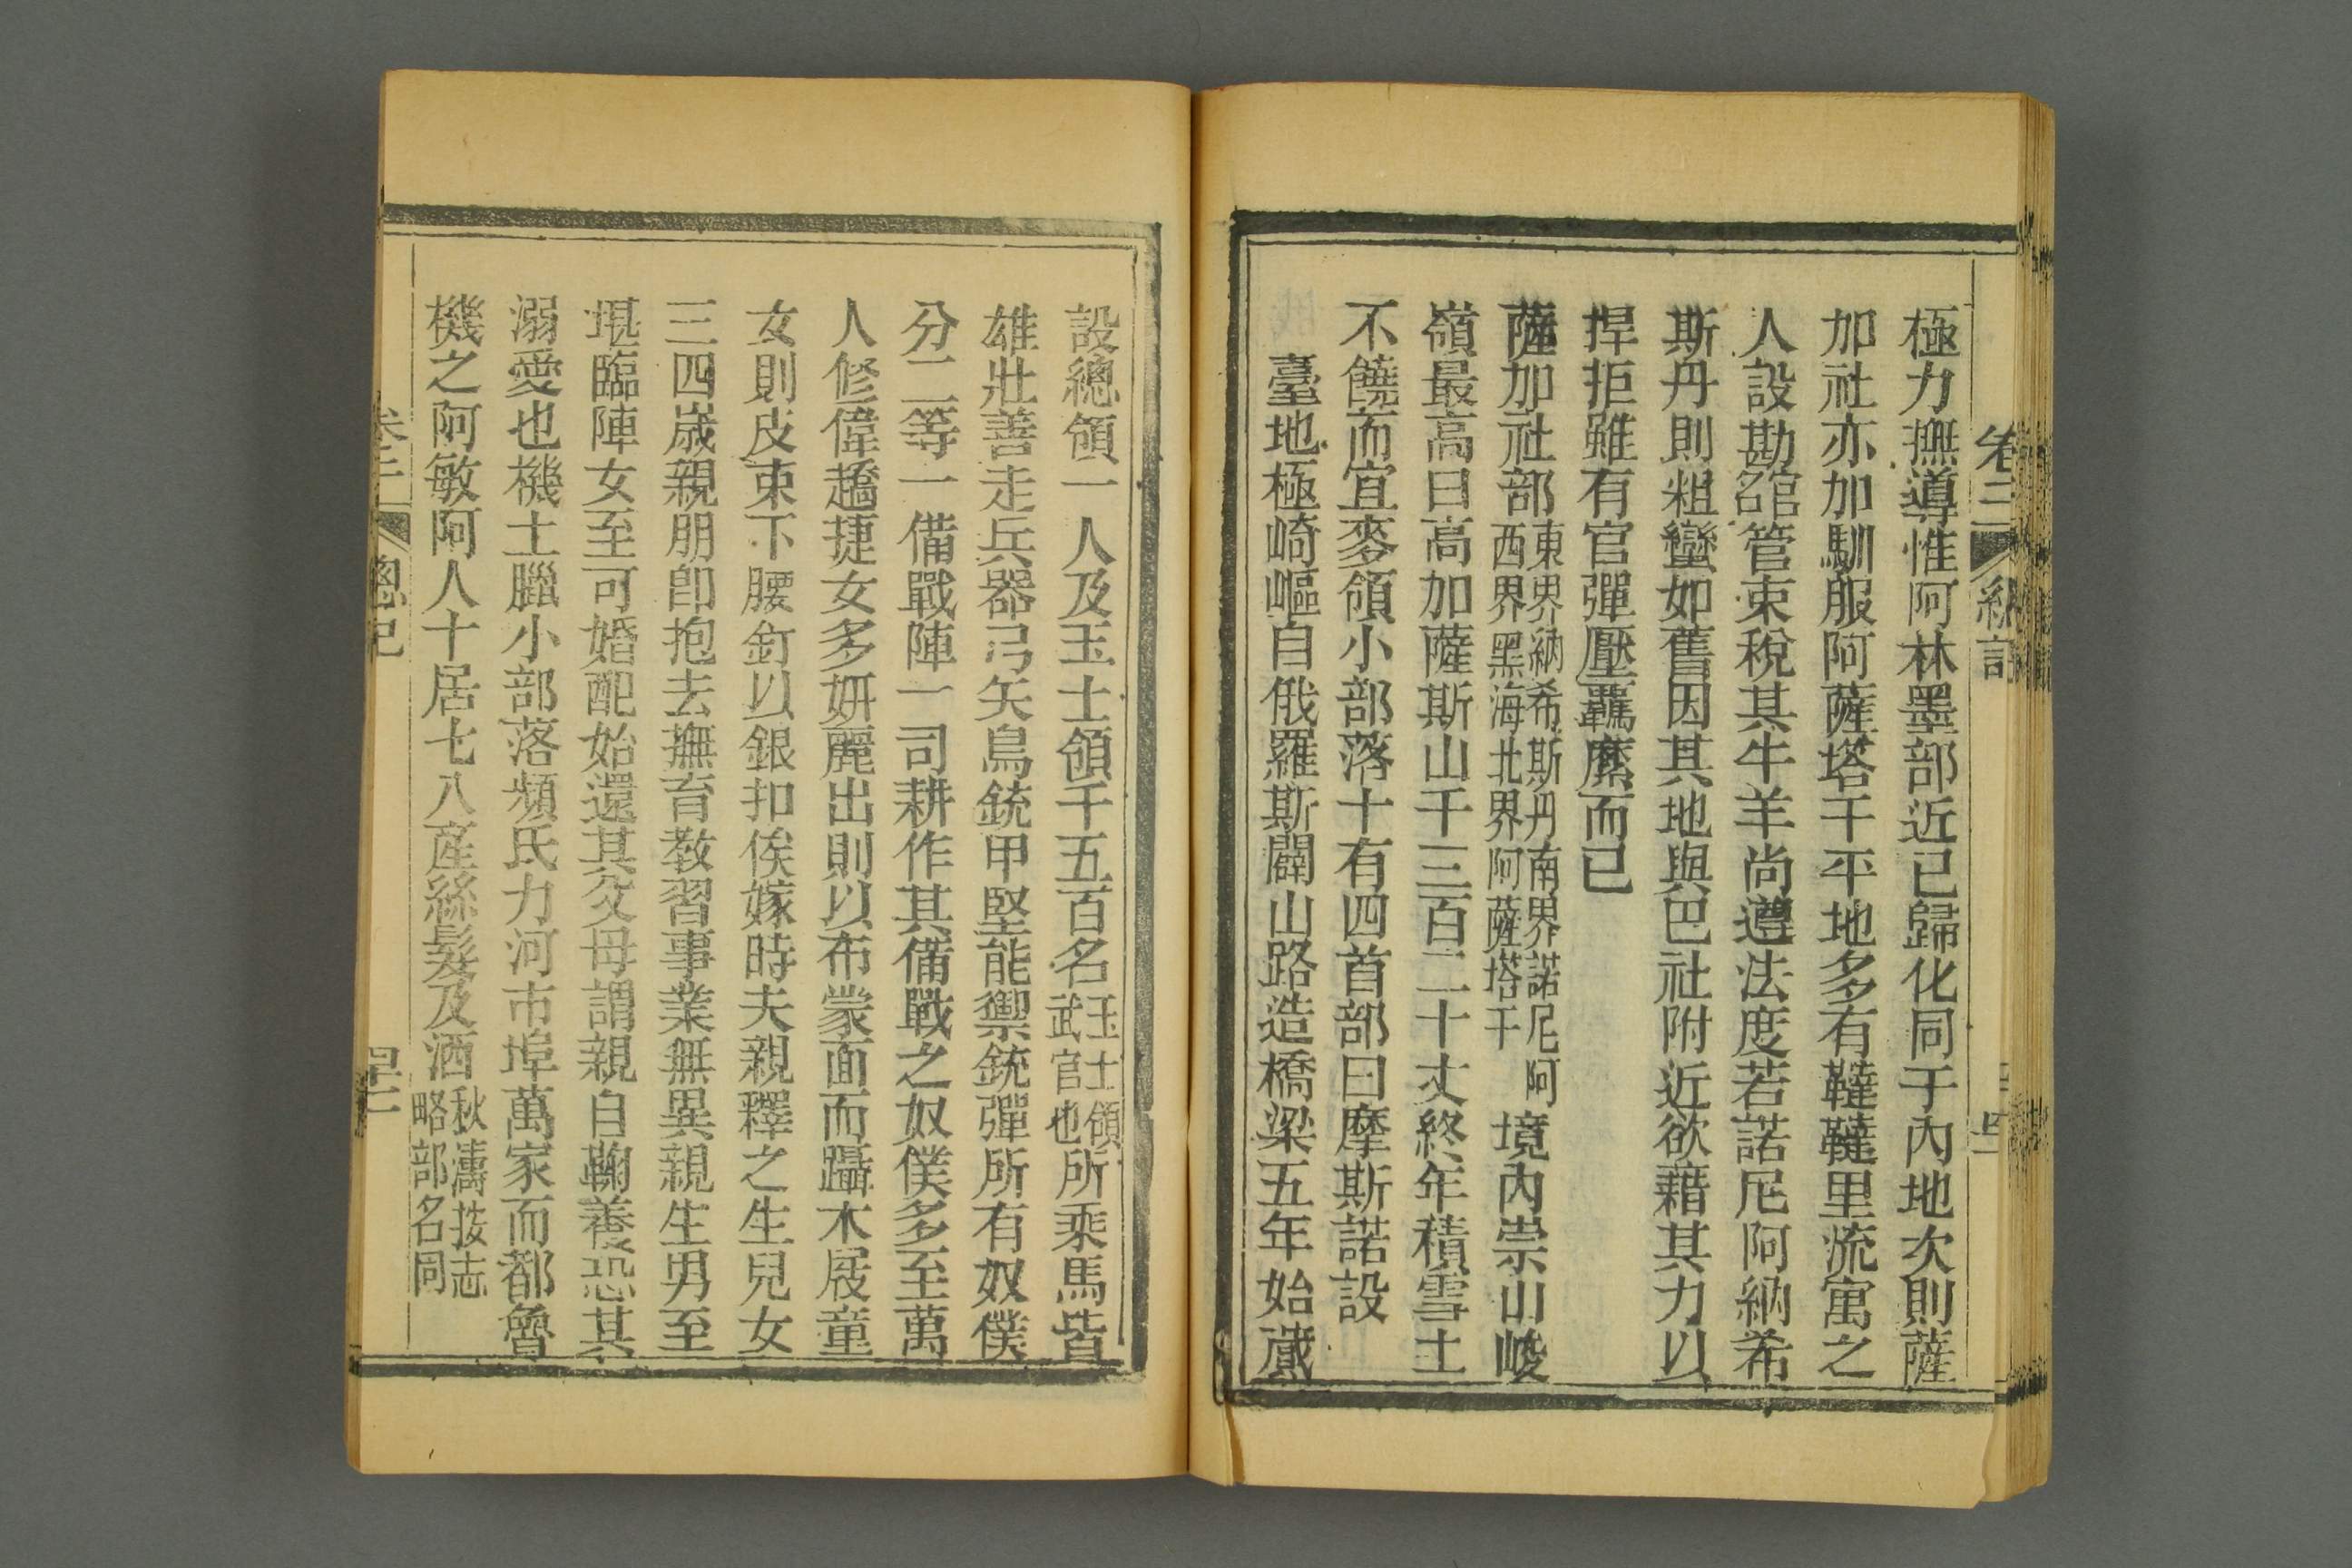 極力撫導惟阿林墨部近已歸化同于內地次則薩
加社亦加馴服阿薩塔干平地多有韃韃里流寓之
人設勘管束稅其牛羊尚遵法度若諾尼阿納希
斯丹則粗蠻如舊因其地與巴社附近欲藉其力以
捍拒雖有官彈壓羈縻而已
薩加社部東界納希斯丹南界諾尼阿西界黑海北界阿薩塔干境內崇山峻
嶺最高曰高加薩斯山千三百二十丈終年積雪土
不饒而宜麥領小部落十有四首部曰摩斯諾設
臺地極崎嶇自俄羅斯闢山路造橋梁五年始蕆
卷三
設總領一人及玉士領千五百名玉士領武官也所乘馬皆
雄壯善走兵器弓矢鳥銃甲堅能禦銃彈所有奴僕
分二等一備戰陣一司耕作其備戰之奴僕多至萬
人修偉趫捷女多妍麗出則以布蒙面而躡木屐童
女則皮束下腰釘以銀扣俟嫁時夫親釋之生兒女
三四歲親朋卽抱去撫育教習事業無異親生男至
堪臨陣女至可婚配始還其父母謂親自鞠養恐其
溺愛也機土臘小部落頻氏力河市埠萬家而都魯
機之阿敏阿人十居七八產絲髮及酒秋濤按志略部名同
總記